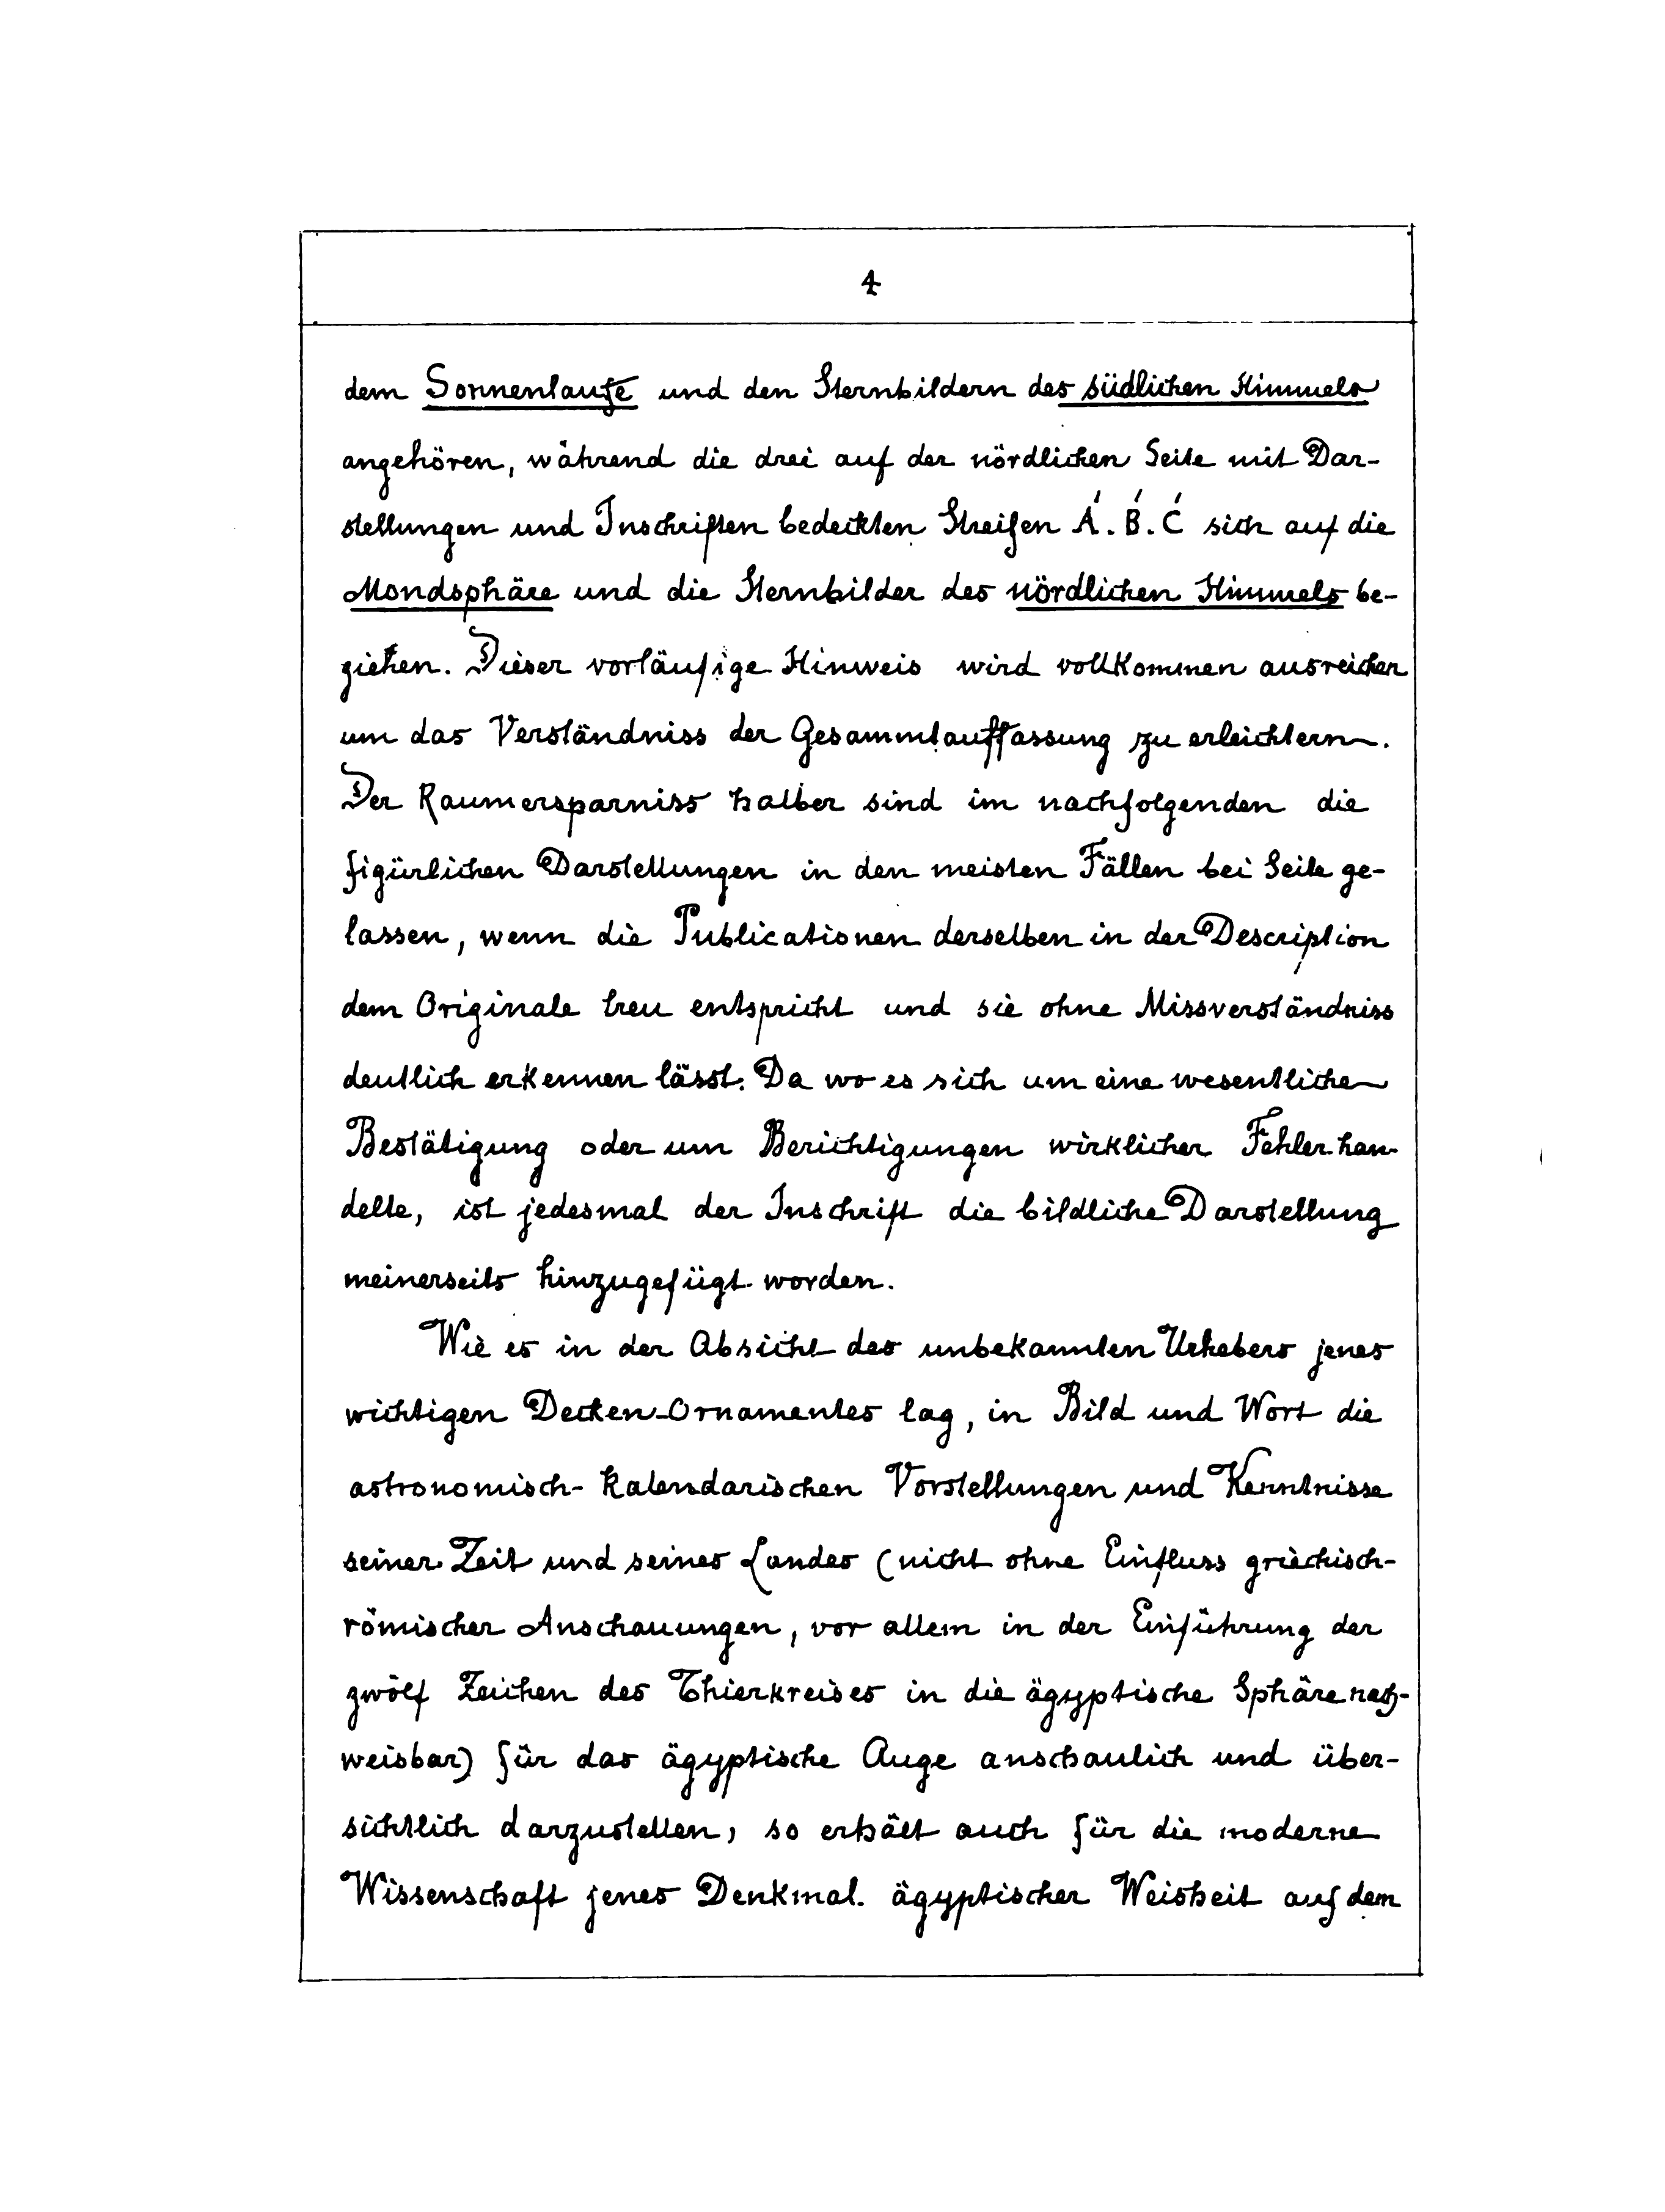 4
dem Sonnenlaufe und den Sternbildern des südlichen Himmels
angehören, während die drei auf der nördlichen Seite mit Dar-
stellungen und Inschriften bedeckten Streifen A´. B´. C´ sich auf die
Mondsphäre und die Sternbilder des nördlichen Himmels be-
ziehen. Dieser vorläufige Hinweis wird vollkommen ausreichen
um das Verständniss der Gesammtauffassung zu erleichtern.
Der Raumersparniss halber sind im nachfolgenden die
figürlichen Darstellungen in den meisten Fällen bei Seite ge-
lassen, wenn die Publicationen derselben in der Description
dem Originale treu entspricht und sie ohne Missverständniss
deutlich erkennen lässt. Da wo es sich um eine wesentliche
Bestätigung oder um Berichtigungen wirklicher Fehler han-
delte, ist jedesmal der Inschrift die bildliche Darstellung
meinerseits hinzugefügt worden.
Wie es in der Absicht des unbekannten Urhebers jenes
wichtigen Decken-Ornamentes lag, in Bild und Wort die
astronomisch-kalendarischen Vorstellungen und Kenntnisse
seiner Zeit und seines Landes (nicht ohne Einfluss griechisch-
römischer Anschauungen, vor allem in der Einführung der
zwölf Zeichen des Thierkreises in die ägyptische Sphäre nach-
weisbar) für das ägyptische Auge anschaulich und über-
sichtlich darzustellen, so erhält auch für die moderne
Wissenschaft jenes Denkmal ägyptischer Weisheit auf dem